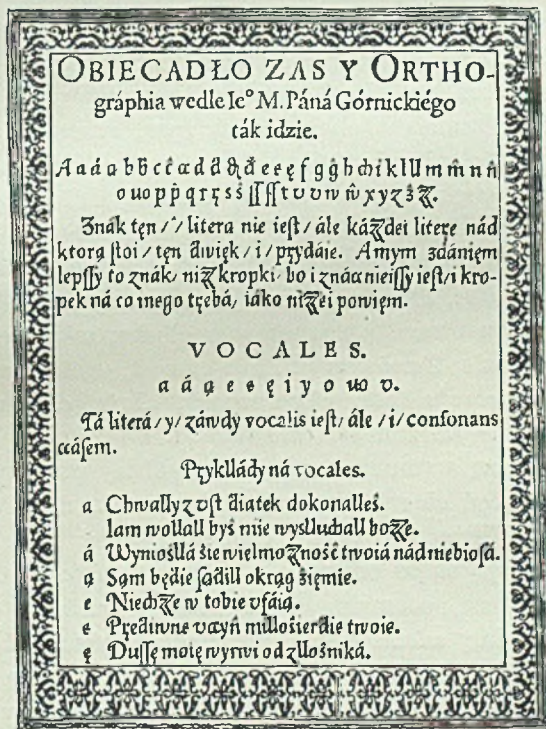 OBIECADŁO ZAS Y ORTHO-
gráphia wedle Ieº M. Páná Górnickiégo
ták idzie.
A a á ą b b̂ c ĉ ꝏ d d̂ e ę f g ĝ h ch i k l ll m m̂ n n̂
o uo p p̂ q r ꞅ s ŝ ſſ ſſ t v v w ŵ x y z ż ꝫꝫ.
Znák tęn /ˆ/ litera nie ieſt / ále káżdei literę nád
ktorą ſtoi / tęn diwięk / i / prydáie. A mym zdánięm
lepſſy to znák / niż kropki / bo i znácnieiſſy ieſt / i kro-
pek ná co inego tręba, iáko niżei powięm.
VOCALES.
a á ą e ę i y o uo v.
Tá literá / y / záwdy vocalis ieſt / ále / i / conſonans
ccáſem.
Prykllády ná vocales.
a Chwally z vſt diatek dokonalleś.
Iam wollall byś mie wyſlluchall boże.
á Wynioſllá śie wielmożność twoiá nád niebioſá.
ą Sąm będie ſądill okrąg źięmie.
e Niech że w tobie vfáią.
e Prędiwne vcyń milloſierdie twoie.
ę Duſſę moię wyrwi od złloſniká.